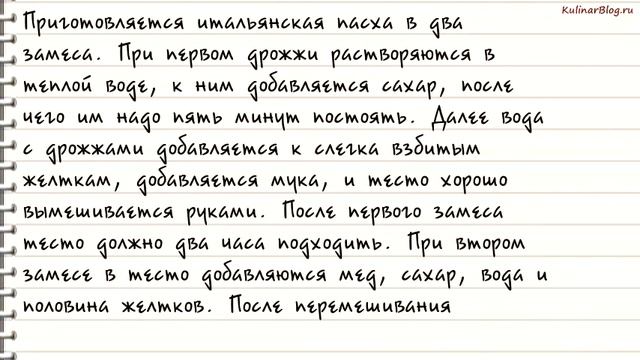 KulinarBlog.ru
Приготовляется итальянская пасха в два
замеса. При первом дрожжи растворяются в
теплой воде, к ним добавляется сахар, после
чего им надо пять минут постоять. Далее вода
с дрожжами добавляется к слегка взбитым
желткам, добавляется мука, и тесто хорошо
вымешивается руками. После первого замеса
тесто должно два часа подходить. При втором
замесе в тесто добавляются мед, сахар, вода и
половина желтков. После перемешивания